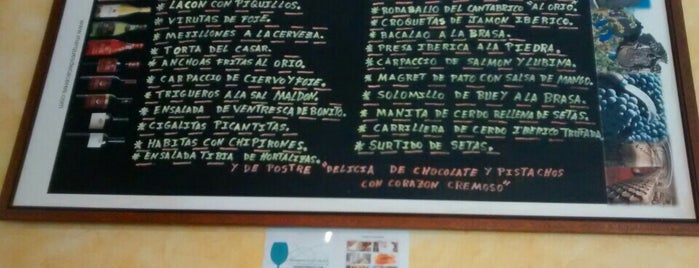 * LACON CON PIQUILLOS.
* VIRUTAS DE FOJE.
* MEJILLONES A LA CERVEZA.
* TORTA DEL CASAR.
* ANCHOAS FRITAS AL ORIO.
* CARPACCIO DE CIERVO Y FOJE.
* TRIGUEROS A LA SAL MALDON.
* ENSALADA DE VENTRESCA DE BONITO.
* CIGALITAS PICANTITAS.
* HABITAS CON CHIPIRONES.
* ENSALADA TIBIA DE HORTALIZAS.
* RODABALLO DEL CANTABRICO "AL ORIO.
* CROQUETAS DE JAMON IBERICO.
* BACALAO A LA BRASA.
* PRESA IBERICA A LA PIEDRA.
* CARPACCIO DE SALMON Y LUBINA.
* MAGRET DE PATO CON SALSA DE MANGO.
* SOLOMILLO DE BUEY A LA BRASA.
* MANITA DE CERDO RELLENA DE SETAS.
* CARRILLERA DE CERDO IBERICO TRUFADA
* SURTIDO DE SETAS.
Y DE POSTRE "DELICIA DE CHOCOLATE Y PISTACHOS
CON CORAZON CREMOSO"